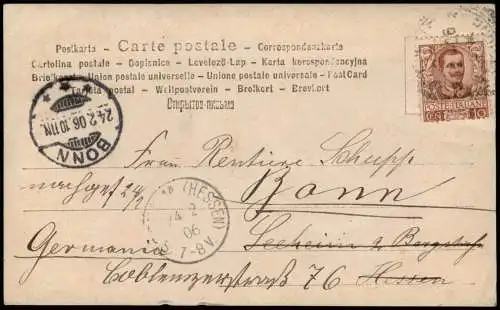 Postkarta — Carte postale — Correspondenzkarte
Cartolina postale — Dopisnice — Levelező-Lap — Karta korespondencyjna
Briefkaart — Union postale universelle — Unione postale universale — PostCard
Tarjeta postal — Weltpostverein — Brefkort — Brevkort
Открытое письмо
POSTE ITALIANE
10
24.2.06.10-11N.
BONN
(HESSEN)
24 2
06
7-8V.
Frau Rentiere Schupp
nachges 24/2 Bonn
Seeheim a. Bergstr.
Germania Hessen
Coblenzerstraß 76